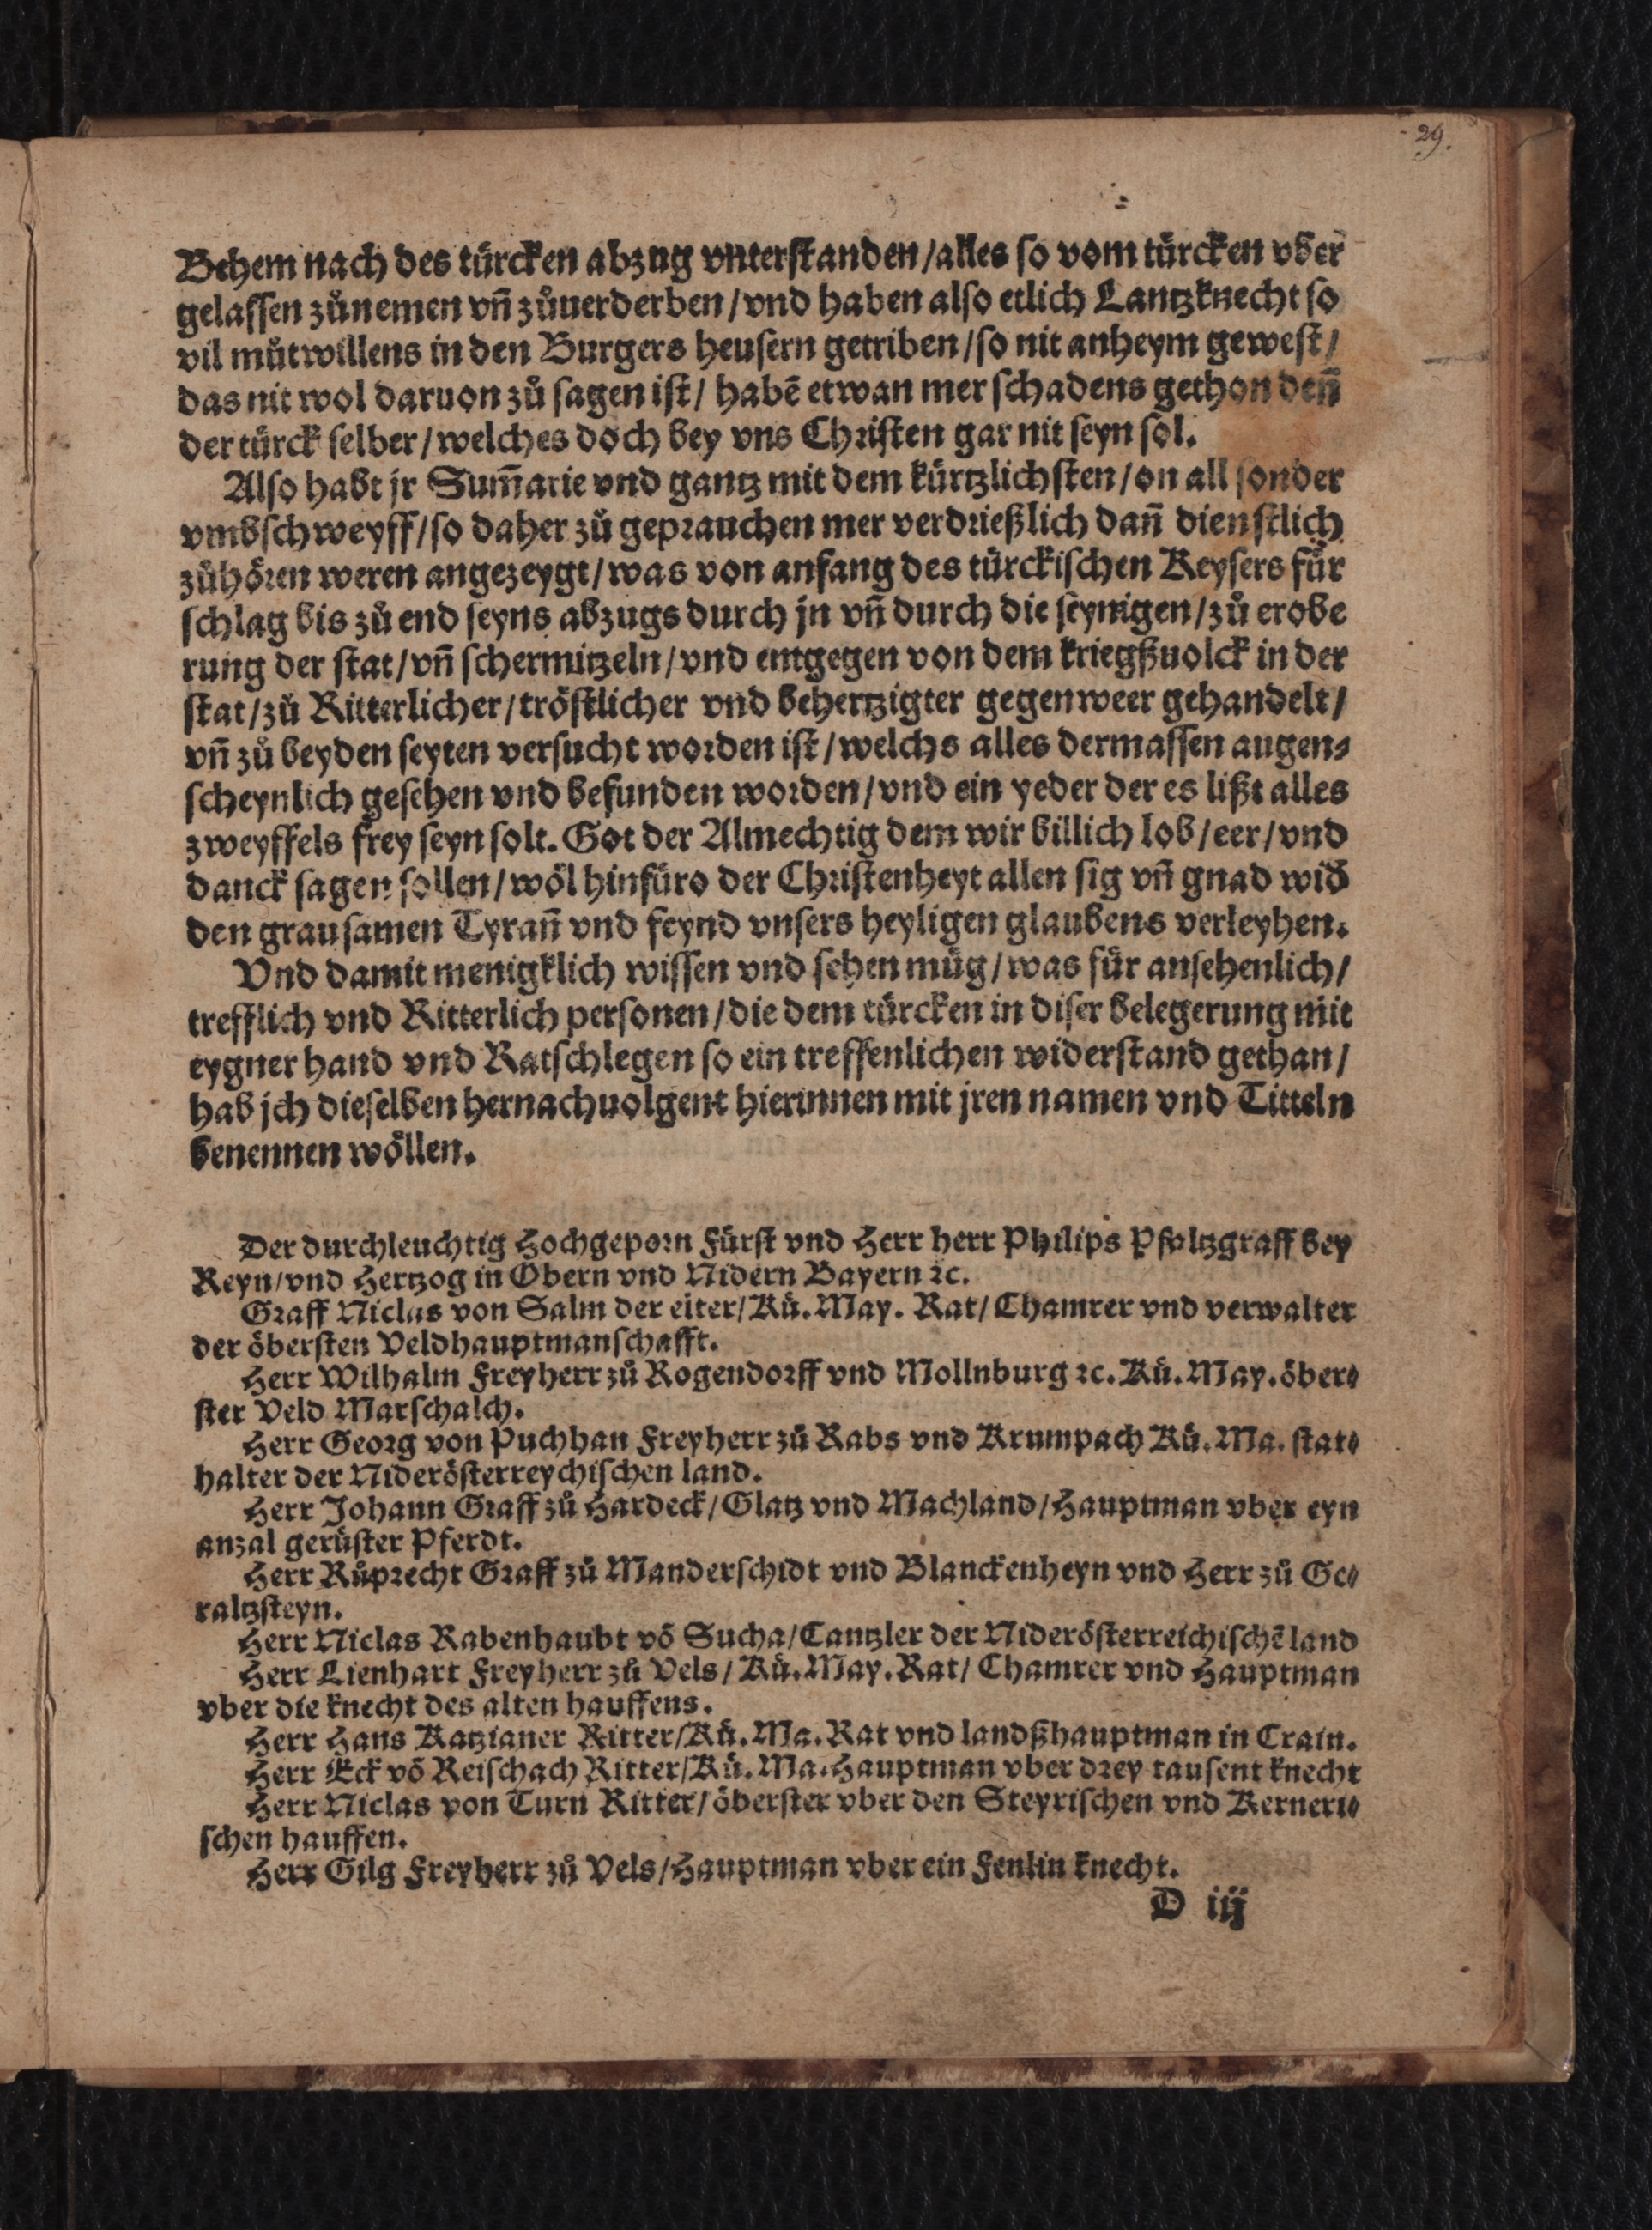 29.
Behem nach des türcken abzug vnterstanden/alles so vom türcken vber
gelassen zůnemen vñ zůuerderben/vnd haben also etlich Lantzknecht so
vil můtwillens in den Burgers heusern getriben/so nit anheym gewest/
das nit wol daruon zů sagen ist/ habē etwan mer schadens gethon deñ
der türck selber/welches doch bey vns Christen gar nit seyn sol.
Also habt jr Sum̄arie vnd gantz mit dem kürtzlichsten/on all sonder
vmbschweyff/so daher zů geprauchen mer verdrießlich dañ dienstlich
zůhören weren angezeygt/was von anfang des türckischen Keysers für
schlag bis zů end seyns abzugs durch jn vñ durch die seynigen/zů erobe
rung der stat/vñ schermitzeln/vnd entgegen von dem kriegßuolck in der
stat/zů Ritterlicher/tröstlicher vnd behertzigter gegenweer gehandelt/
vñ zů beyden seyten versucht worden ist/welchs alles dermassen augen⸗
scheynlich gesehen vnd befunden worden/vnd ein yeder der es lißt alles
zweyffels frey seyn solt. Got der Almechtig dem wir billich lob/eer/vnd
danck sagen sollen/wöl hinfüro der Christenheyt allen sig vñ gnad wid̄
den grausamen Tyrañ vnd feynd vnsers heyligen glaubens verleyhen.
Vnd damit menigklich wissen vnd sehen müg/was für ansehenlich/
trefflich vnd Ritterlich personen/die dem türcken in diser belegerung mit
eygner hand vnd Ratschlegen so ein treffenlichen widerstand gethan/
hab jch dieselben hernachuolgent hierinnen mit jren namen vnd Titteln
benennen wöllen.
Der durchleuchtig Hochgeporn Fürst vnd Herr herr Philips Pfaltzgraff bey
Reyn/vnd Hertzog in Obern vnd Nidern Bayern ꝛc.
Graff Niclas von Salm der elter/Kü. May. Rat/Chamrer vnd verwalter
der öbersten Veldhauptmanschafft.
Herr Wilhalm Freyherr zů Rogendorff vnd Mollnburg ꝛc. Kü. May. öber⸗
ster Veld Marschalch.
Herr Georg von Puchhan Freyherr zů Rabs vnd Krumpach Kü. Ma. stat⸗
halter der Niderösterreychischen land.
Herr Johann Graff zů Hardeck/Glatz vnd Machland/Hauptman vber eyn
anzal gerüster Pferdt.
Herr Růprecht Graff zů Manderschidt vnd Blanckenheyn vnd Herr zů Ge⸗
raltzsteyn.
Herr Niclas Rabenhaubt vō Sucha/Cantzler der Niderösterreichischē land
Herr Lienhart Freyherr zů Vels/Kü. May. Rat/ Chamrer vnd Hauptman
vber die knecht des alten hauffens.
Herr Hans Katzianer Ritter/Kü. Ma. Rat vnd landßhauptman in Crain.
Herr Eck vō Reischach Ritter/Kü. Ma. Hauptman vber drey tausent knecht
Herr Niclas von Turn Ritter/öberster vber den Steyrischen vnd Kerneri⸗
schen hauffen.
Herr Gilg Freyherr zů Vels/Hauptman vber ein Fenlin knecht.
D iij